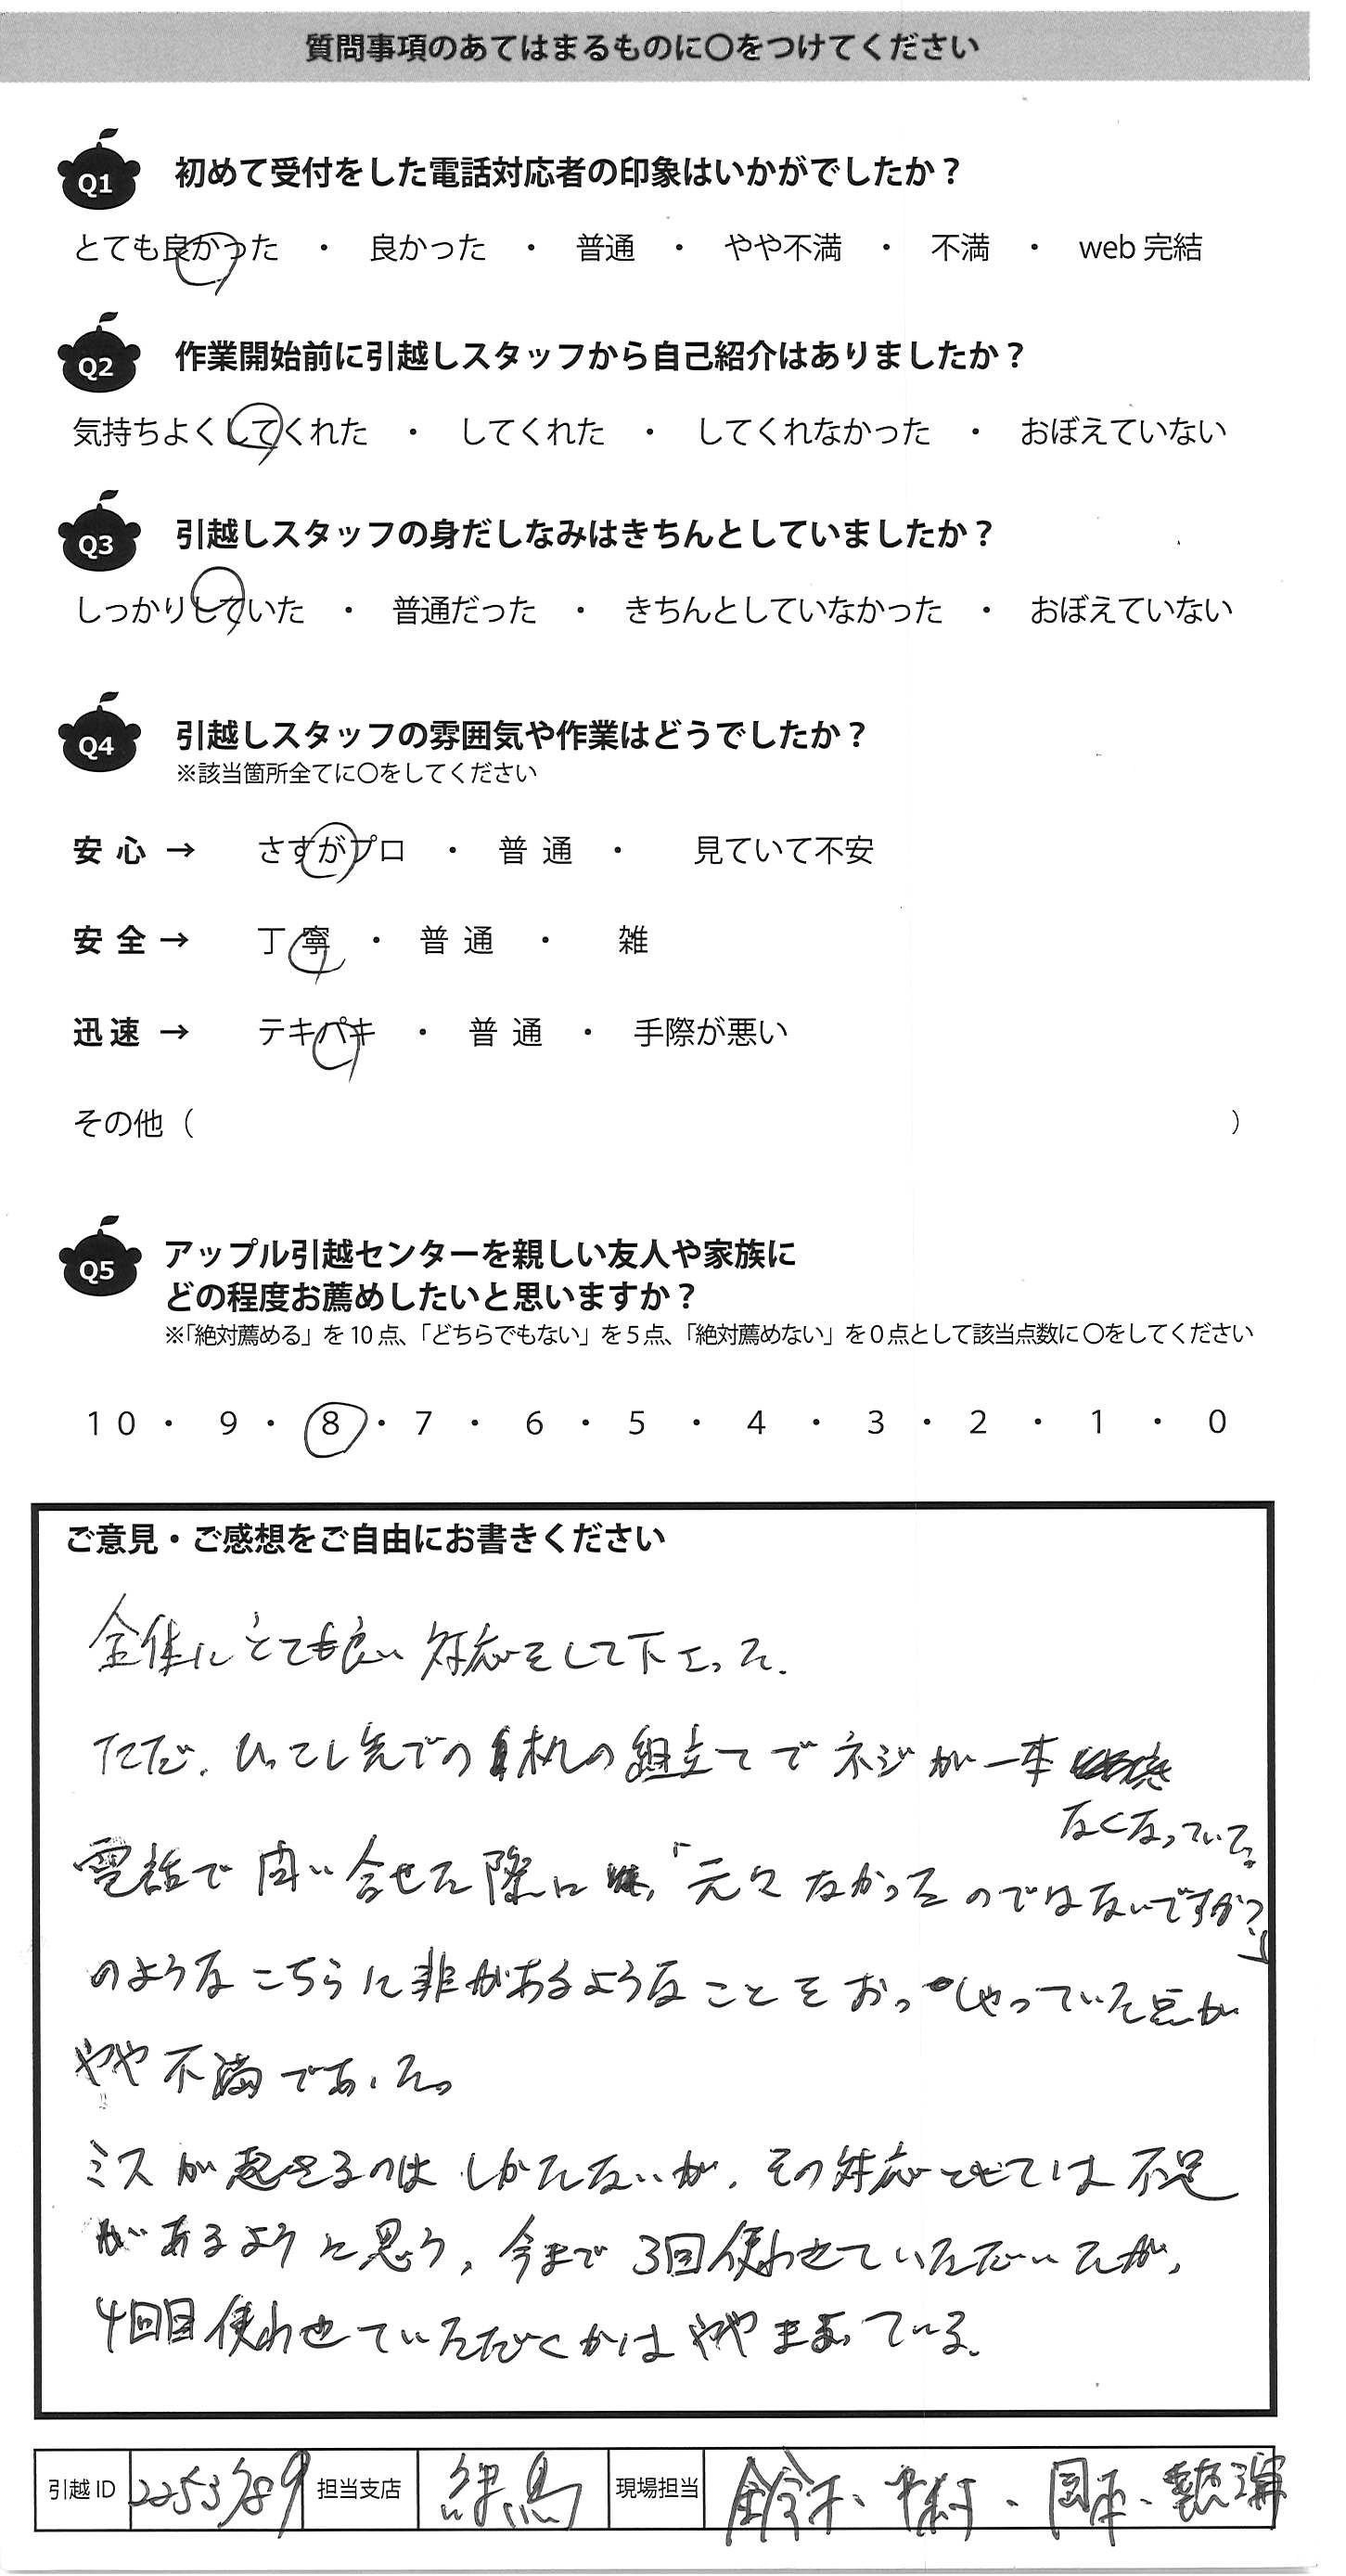 質問事項のあてはまるものに〇をつけてください
Q1 初めて受付をした電話対応者の印象はいかがでしたか？
とても良かった ・ 良かった ・ 普通 ・ やや不満 ・ 不満 ・ web 完結
Q2 作業開始前に引越しスタッフから自己紹介はありましたか？
気持ちよくしてくれた ・ してくれた ・ してくれなかった ・ おぼえていない
Q3 引越しスタッフの身だしなみはきちんとしていましたか？
しっかりしていた ・ 普通だった ・ きちんとしていなかった ・ おぼえていない
Q4 引越しスタッフの雰囲気や作業はどうでしたか？
※該当箇所全てに〇をしてください
安心 → さすがプロ ・ 普通 ・ 見ていて不安
安全 → 丁寧 ・ 普通 ・ 雑
迅速 → テキパキ ・ 普通 ・ 手際が悪い
その他（ ）
Q5 アップル引越センターを親しい友人や家族に
どの程度お薦めしたいと思いますか？
※「絶対薦める」を 10 点、「どちらでもない」を 5 点、「絶対薦めない」を 0 点として該当点数に 〇をしてください
10 ・ 9 ・ 8 ・ 7 ・ 6 ・ 5 ・ 4 ・ 3 ・ 2 ・ 1 ・ 0
ご意見・ご感想をご自由にお書きください
全体にとても良い対応をして下さった.
ただ、ひっこし先での机の組立てでネジが一本
なくなっていて。
電話で問い合せた際に、「元々なかったのではないですか?」
のようなこちらに非があるようなことをおっしゃっていた点が
やや不満であった。
ミスが起きるのはしかたないが、その対応としては不足
があるように思う、今まで3回使わせていただいたが、
4回目使わせていただくかはやや迷っている.
引越 ID 2253789 担当支店 練馬 現場担当 鈴木、中村、岡本、